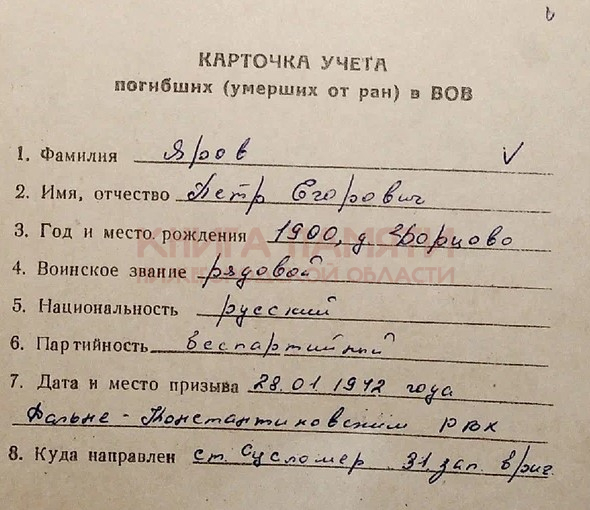 КАРТОЧКА УЧЕТА
погибших (умерших от ран) в ВОВ
1. Фамилия Яров
2. Имя, отчество Петр Егорович
3. Год и место рождения 1900, д.
КНИГА ПАМЯТИ
4. Воинское звание рядовой
НИЖЕГОРОДСКОЙ ОБЛАСТИ
5. Национальность русский
6. Партийность беспартийный
7. Дата и место призыва 28.01 1942 года
Дальне-Константиновским РВК
8. Куда направлен ст. Суслонгер 31. зап. бриг.